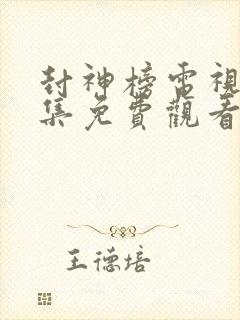 封神榜電視
集免費觀看
王德培